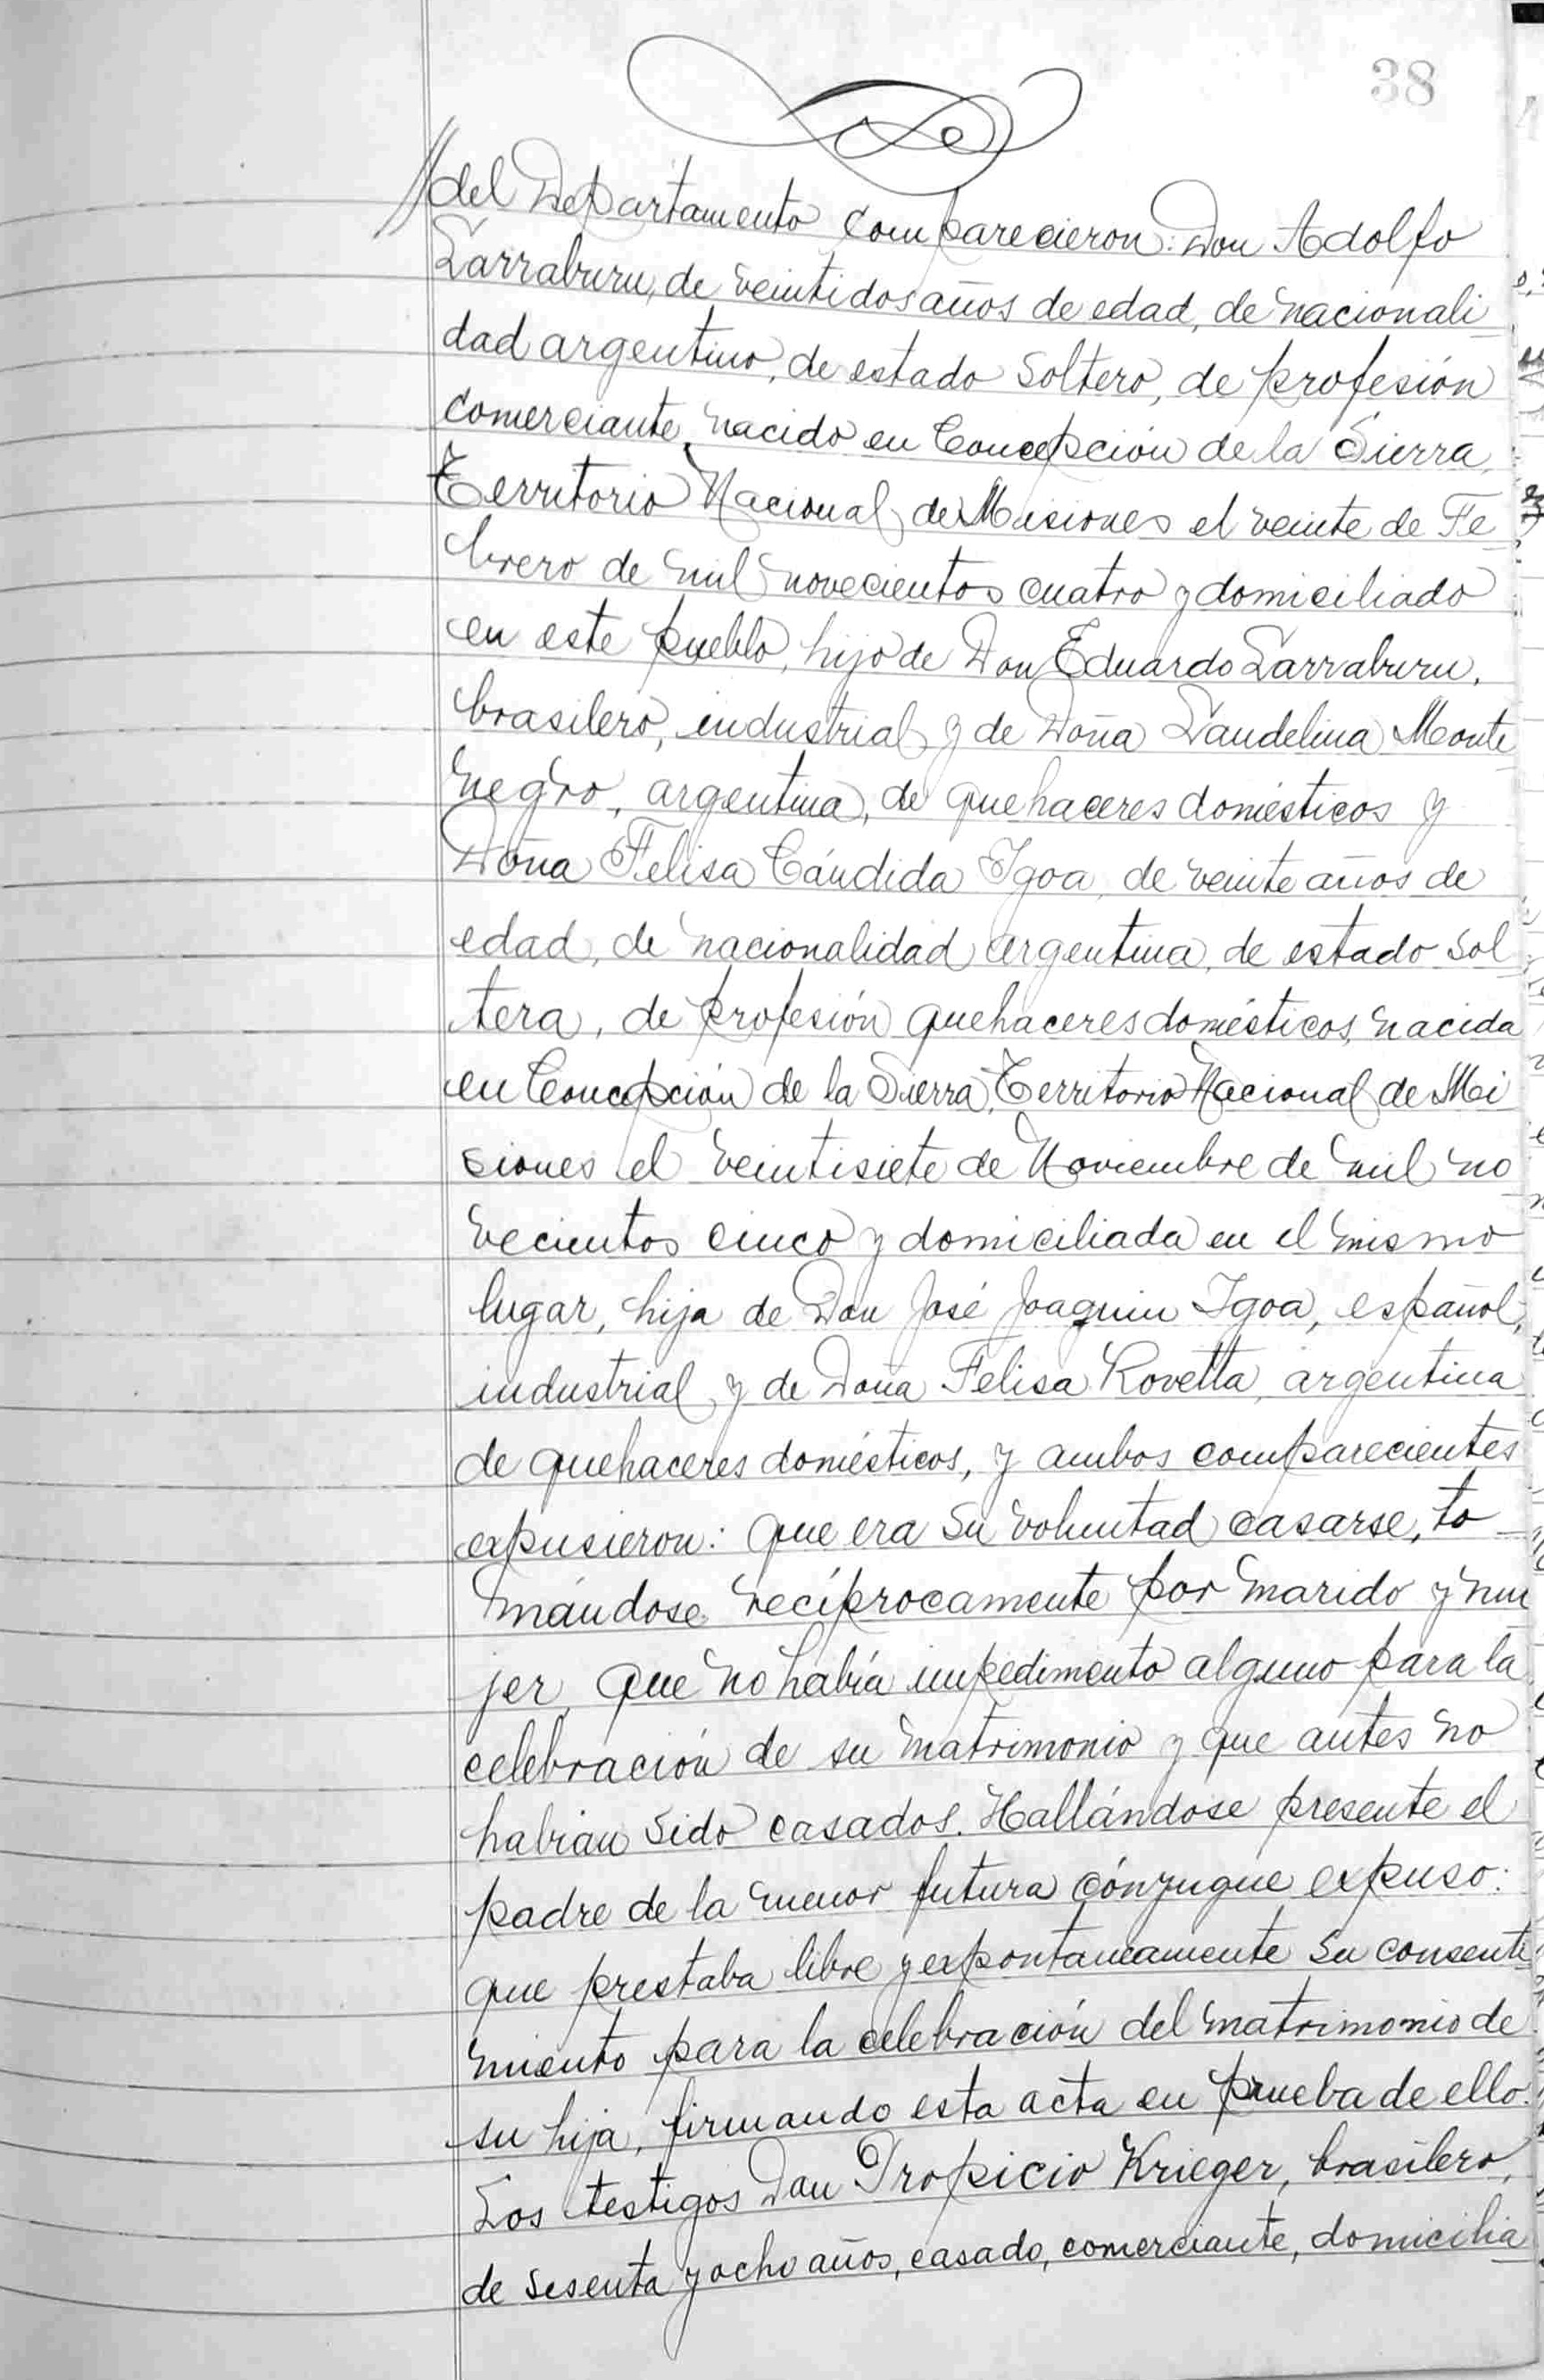 38
//del Departamento comparecieron: Don Adolfo
Larraburu, de veintidos años de edad, de nacionali
dad argentino, de estado soltero, de profesión
comerciante, nacido en Concepción de la Sierra,
Territorio Nacional de Misiones el veinte de Fe
brero de mil novecientos cuatro y domiciliado
en este pueblo, hijo de Don Eduardo Larraburu,
brasilero, industrial y de Doña Laudelina Monte
negro, argentina, de quehaceres domésticos y
Doña Felisa Cándida Igoa, de veinte años de
edad, de nacionalidad argentina, de estado sol
tera, de profesión quehaceres domésticos, nacida
en Concepción de la Sierra, Territorio Nacional de Mi
siones el veintisiete de Noviembre de mil no
vecientos cinco y domiciliada en el mismo
lugar, hija de Don José Joaquin Igoa, español,
industrial y de Doña Felisa Rovetta, argentina
de quehaceres domésticos, y ambos comparecientes
expusieron: que era su voluntad casarse, to
mándose recíprocamente por marido y mu
jer, que no había impedimento alguno para la
celebración de su matrimonio y que antes no
habian sido casados. Hallándose presente el
padre de la menor futura cónyugue expuso:
que prestaba libre y expontaneamente su consenti
miento para la celebración del matrimonio de
su hija, firmando esta acta en prueba de ello.
Los testigos Don Propicio Krieger, brasilero,
de sesenta y ocho años, casado, comerciante, domicilia